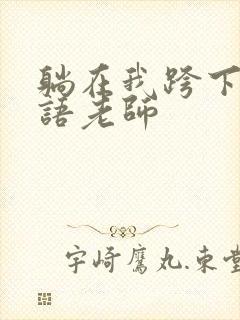 躺在我跨下
語老師
宇崎鷹丸.東堂